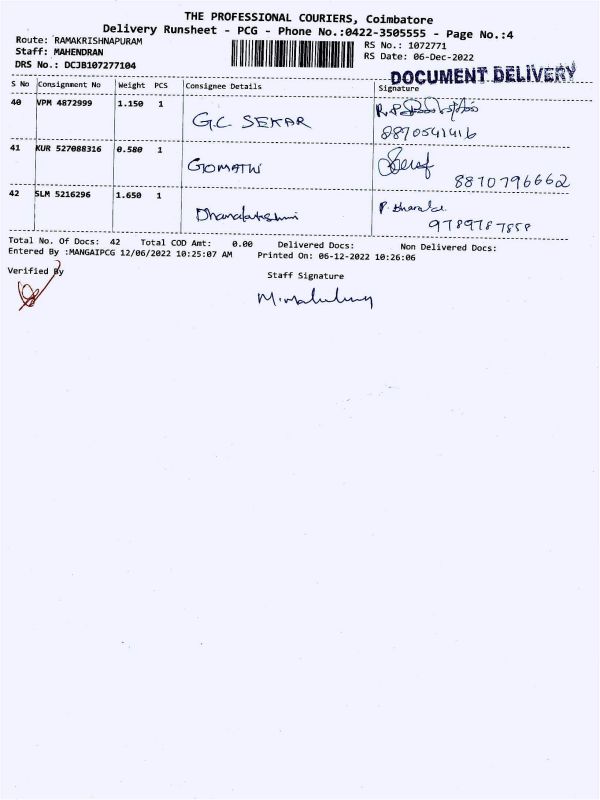 THE PROFESSIONAL COURIERS, Coimbatore
Delivery Runsheet - PCG - Phone No.:0422-3505555 - Page No.:4
Route: RAMAKRISHNAPURAM
RS No.: 1072771
Staff: MAHENDRAN
RS Date: 06-Dec-2022
DRS No.: DCJB107277104
DOCUMENT DELIVERY
S No Consignment No Weight PCS Consignee Details Signature
40 VPM 4872999 1.150 1
G.C SEKAR
8870541416
41 KUR 527088316 0.580 1
GOMATHI
8870796662
42 SLM 5216296 1.650 1
Dhanalakshmi
9789787858
Total No. Of Docs: 42 Total COD Amt: 0.00 Delivered Docs: Non Delivered Docs:
Entered By :MANGAIPCG 12/06/2022 10:25:07 AM Printed On: 06-12-2022 10:26:06
Verified By
Staff Signature